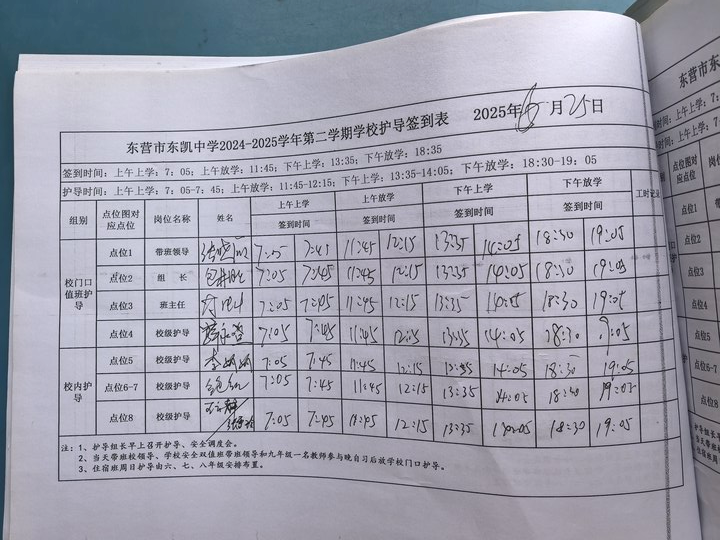 东营市东凯中学2024-2025学年第二学期学校护导签到表 2025年6月25日
签到时间：上午上学：7：05；上午放学：11:45；下午上学：13:35；下午放学：18:35
护导时间：上午上学：7：05-7：45；上午放学：11:45-12:15；下午上学：13:35-14:05；下午放学：18:30-19：05
组别 点位图对应点位 岗位名称 姓名 上午上学 签到时间 上午放学 签到时间 下午上学 签到时间 下午放学 签到时间 工时记录
校门口值班护导
点位1 带班领导 7:05 7:45 11:45 12:15 13:35 14:05 18:30 19:05
点位2 组 长 7:05 7:45 11:45 12:15 13:35 14:05 18:30 19:05
点位3 班主任 7:05 7:45 11:45 12:15 13:35 14:05 18:30 19:05
点位4 校级护导 7:05 7:45 11:45 12:15 13:35 14:05 18:30 19:05
校内护导
点位5 校级护导 7:05 7:45 11:45 12:15 14:05 18:30 19:05
点位6-7 校级护导 7:05 7:45 11:45 12:15 13:35 14:05 18:30 19:05
点位8 校级护导 7:05 7:45 11:45 12:15 13:35 18:30 19:05
注：1、护导组长早上召开护导、安全调度会。
2、当天带班校领导、学校安全双值班带班领导和九年级一名教师参与晚自习后放学校门口护导。
3、住宿班周日护导由六、七、八年级安排布置。
东营市东
签到时间：上午上学：7：
护导时间：上午上学：7：
组别 点位图对应点位 岗
点位1
点位2
点位3
点位4
点位5
点位6-7
点位8